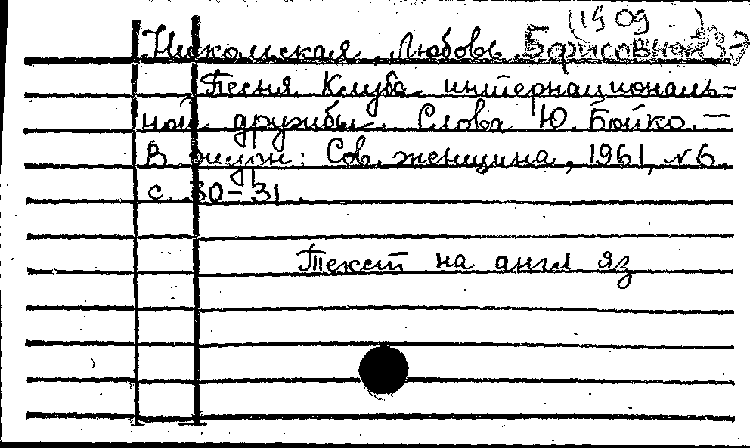 (1909 )
Никольская, Любовь Борисовна
Песня Клуба интернациональ-
ной дружбы. Слова Ю. Бойко. —
В журн: Сов. женщина, 1961, №6
с. 30-31.
Текст на англ яз